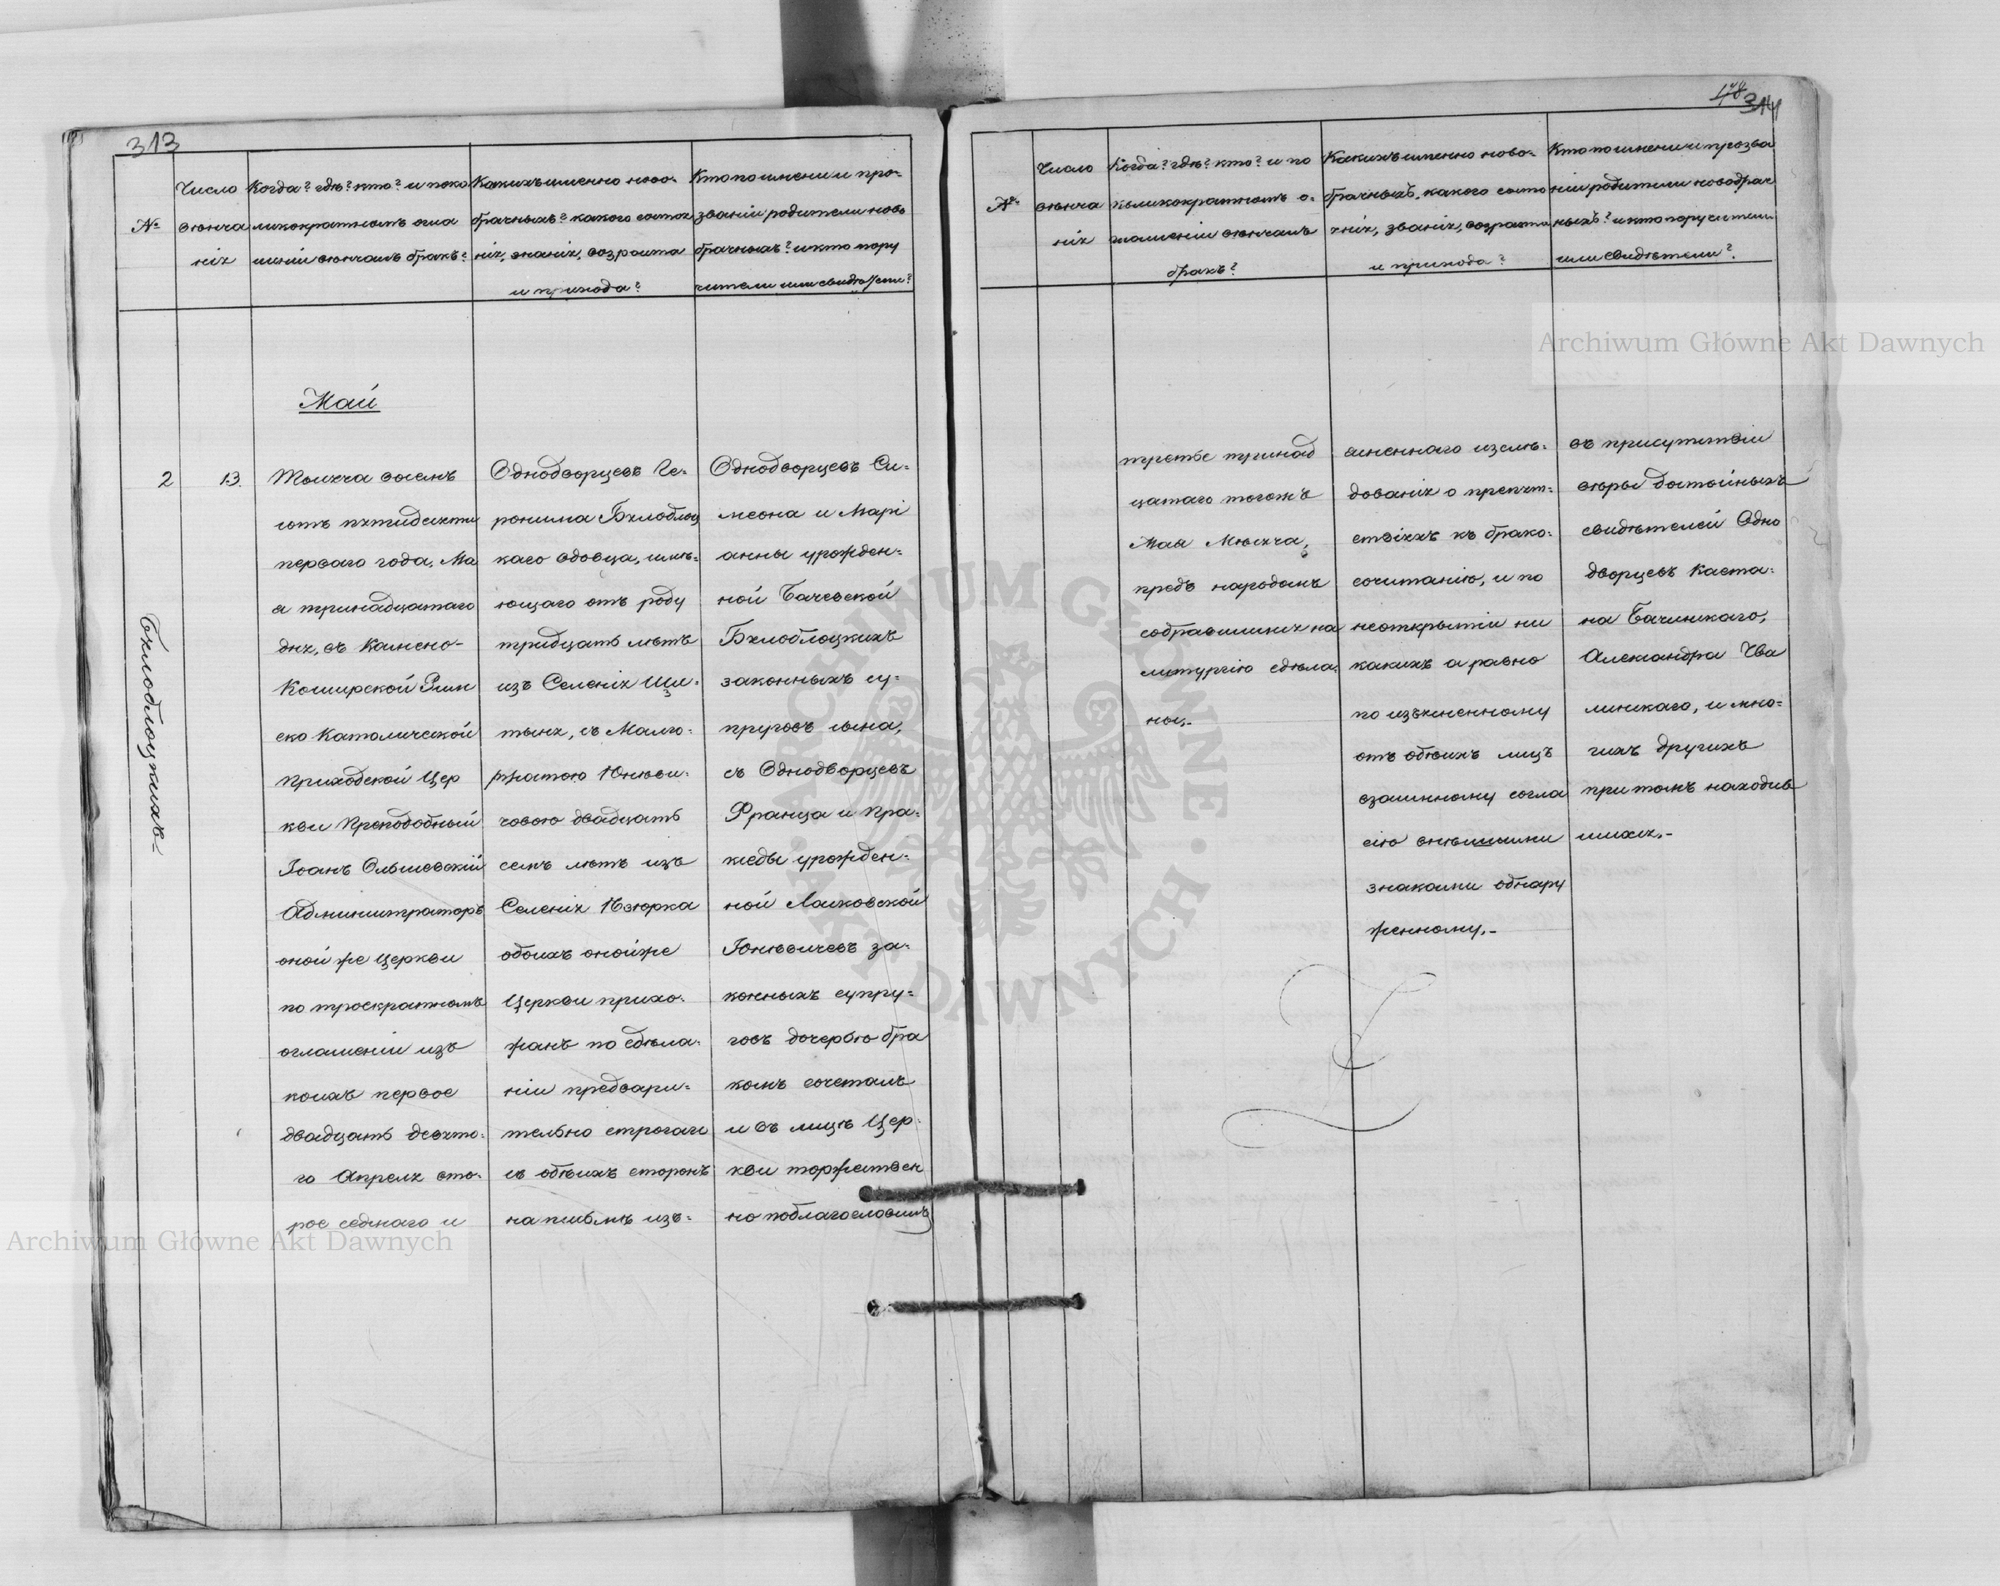 313
№
Число
вѣнча
нія
Когда? гдѣ? кто? и поко
ликократномъ огла
шеніи вѣнчалъ бракъ?
Какихъ именно ново-
брачныхъ? какого состоя
нія, званія, возраста
и прихода?
Кто по имени и про-
званіи родители ново
брачныхъ? и кто пору
чители или свидѣтели?
Май
2
13.
Бялоблоцкихъ
Тысяча восемь
сотъ пятидесяти
перваго года, Ма
я тринадцатаго
дня, въ Камено-
Коширской Рим
ско Католической
Приходской Цер
кви Преподобный
Іоанъ Ольшевскій
Администраторъ
оной же Церкви
по троекратномъ
оглашеніи изъ
коихъ первое
двадцать девято-
го Апреля вто-
рое седмаго и
Однодворцевъ Ге-
ронима Бялоблоц
каго вдовца, имѣ-
ющаго отъ роду
тридцать лѣтъ
изъ Селенія Щи-
тыня, съ Малго-
ржатою Юневи-
човою двадцать
семъ лѣтъ изъ
Селенія
обоихъ онойже
Церкви прихо-
жанъ по сдѣла-
ніи предвари-
тельно строгаго
съ обѣихъ сторонъ
на письмѣ изъ-
Однодворцевъ Си-
меона и Марі
анны урожден-
ной Бачевской
Бялоблоцкихъ
законныхъ су-
пруговъ сына,
съ Однодворцевъ
Франца и Пра-
кседы урожден-
ной
Юневичевъ за-
конныхъ супру-
говъ дочерью бра
комъ сочеталъ
и въ лицѣ Цер-
кви торжествен
но поблагословилъ
314
№
Число
вѣнча
нія
Когда? гдѣ? кто? и по
коликократномъ о-
глашеніи вѣнчалъ
бракъ?
Какихъ именно ново-
брачныхъ, какого состо
янія, званія, возраста
и прихода?
Кто по имени и прозва
ніи родители новобрач
ныхъ? и кто поручители
или свидѣтели?
третье тринад
цатаго тогожъ
Мая Мѣсяца,
предъ народомъ
собравшимся на
литургію сдѣла-
ны.-
ясненнаго изслѣ-
дованія о препят-
ствіяхъ къ брако-
сочитанію, и по
неоткрытіи ни
какихъ а равно
по изъясненному
отъ обѣихъ лицъ
взаимному согла
сію внѣшними
знаками обнару
женному.-
въ присутствіи
вѣры достойныхъ
свидѣтелей Одно
дворцевъ Каета-
на Бачинскаго,
Александра Чва
линскаго, и мно-
гихъ другихъ
при томъ находив
шихся.-
Archiwum Główne Akt Dawnych
Archiwum Główne Akt Dawnych
ARCHIWUM GŁÓWNE · AKT DAWNYCH ·